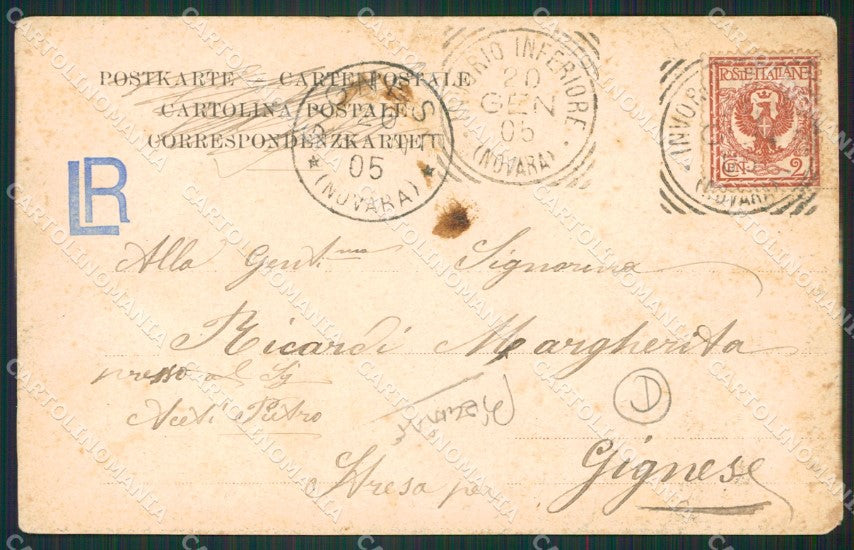 POSTKARTE - CARTE POSTALE
CARTOLINA POSTALE
CORRESPONDENZKARTE
20
05
(NOVARA)
INVORIO INFERIORE
20
GEN
05
(NOVARA)
POSTE ITALIANE
CEN. 2
INVOR
(NOVARA)
LR
Alla Gentma Signorina
Ricardi Margherita
presso al Sig
Aceti Pietro
D
Stresa per Gignese
CARTOLINOMANIA